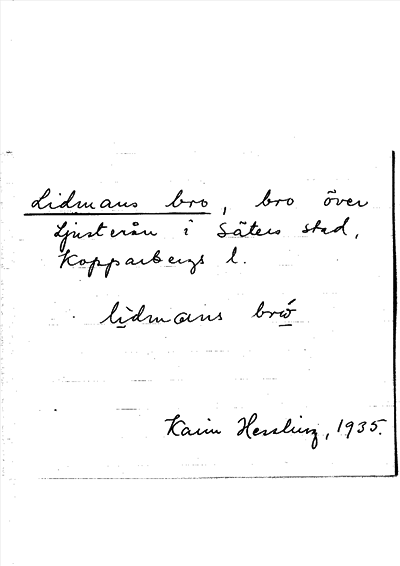 Lidmans bro, bro över
Ljusterån i Säters stad,
Kopparbergs l.
lidmans brώ
Karin Hessling, 1935.